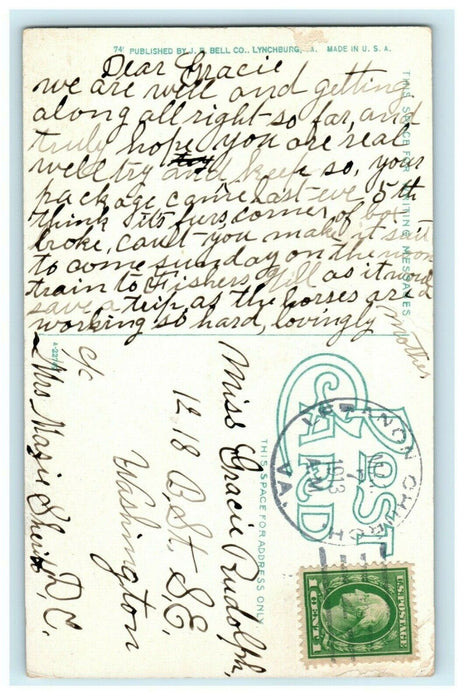 74 PUBLISHED BY J. P. BELL CO., LYNCHBURG, VA. MADE IN U. S. A.
THIS SPACE FOR WRITING MESSAGES
Dear Gracie
we are well and getting
along all right so far, and
truly hope you are real
well try and keep so, your
package came last eve 5th
think its furs, corner of box
broke, cant you make it suit
to come sunday on the noon
train to Fishers Hill as it would
save a trip, as the horses are
working so hard, lovingly
Mother
POST CARD
THIS SPACE FOR ADDRESS ONLY
Miss Gracie Rudolph,
1218 B, St, S.E.
Washington
D.C.
c/o
Mrs Mazie
VERNON CHURCH
VA.
7
AM
1913
U.S. POSTAGE
1 CENT 1